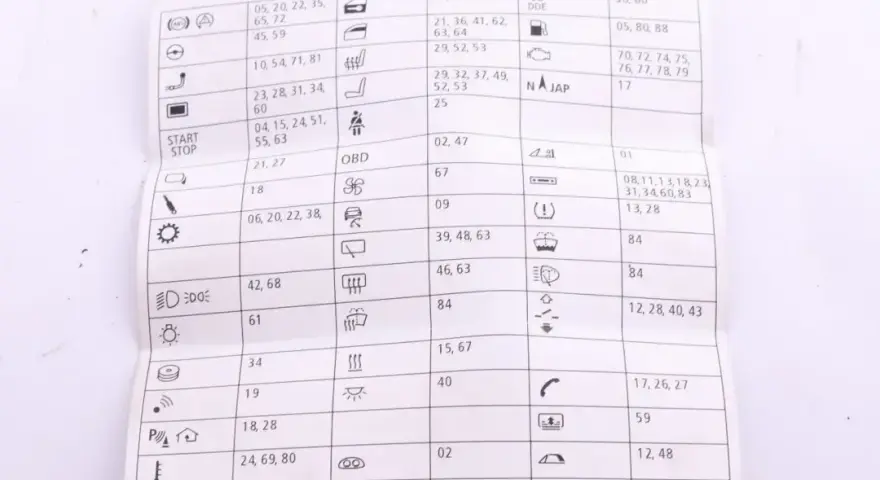 05, 20, 22, 35,
65, 72
DDE
45, 59
21, 36, 41, 62,
63, 64
05, 80, 88
10, 54, 71, 81
29, 52, 53
70, 72, 74, 75,
76, 77, 78, 79
23, 28, 31, 34,
60
29, 32, 37, 49,
52, 53
N JAP
17
START
STOP
04, 15, 24, 51,
55, 63
25
21, 27
OBD
02, 47
01
18
67
08,11,13,18,23,
31,34,60,83
06, 20, 22, 38,
09
13, 28
39, 48, 63
84
42, 68
46, 63
84
61
84
12, 28, 40, 43
34
15, 67
19
40
17, 26, 27
P
18, 28
59
24, 69, 80
02
12, 48